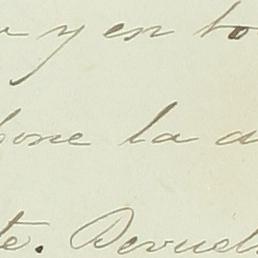 y en to
pone la d
te. Devuel